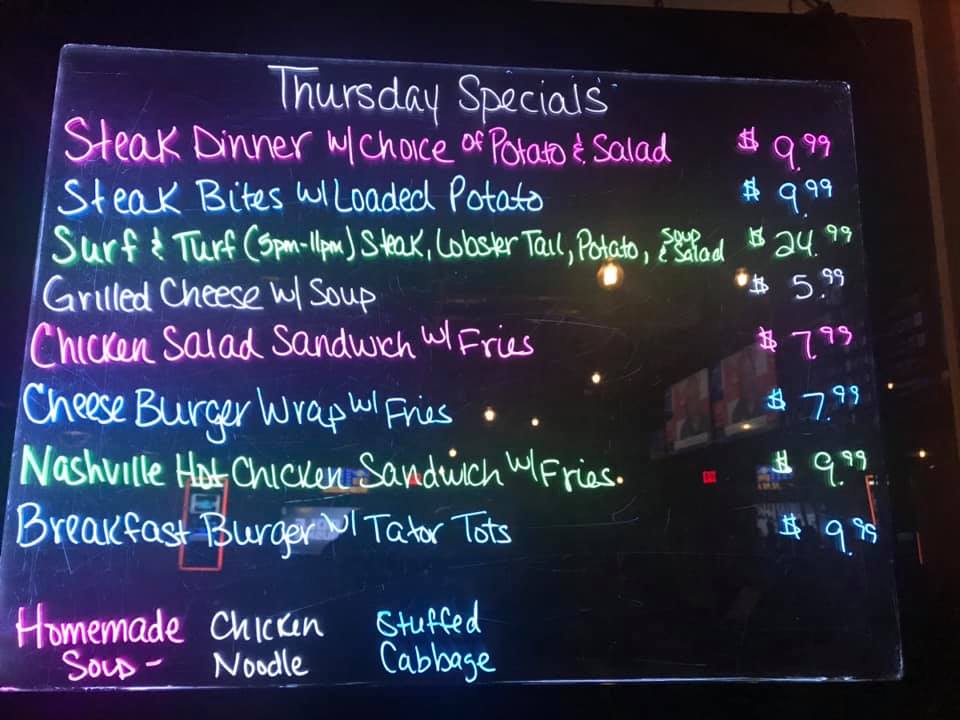 Thursday Specials
Steak Dinner w/ Choice of Potato & Salad $ 9.99
Steak Bites w/ Loaded Potato $ 9.99
Surf & Turf (5pm-11pm) Steak, Lobster Tail, Potato, & Soup & Salad $ 24.99
Grilled Cheese w/ Soup $ 5.99
Chicken Salad Sandwich w/ Fries $ 7.99
Cheese Burger Wrap w/ Fries $ 7.99
Nashville Hot Chicken Sandwich w/ Fries. $ 9.99
Breakfast Burger w/ Tator Tots $ 9.99
Homemade Chicken Stuffed
Soup - Noodle Cabbage